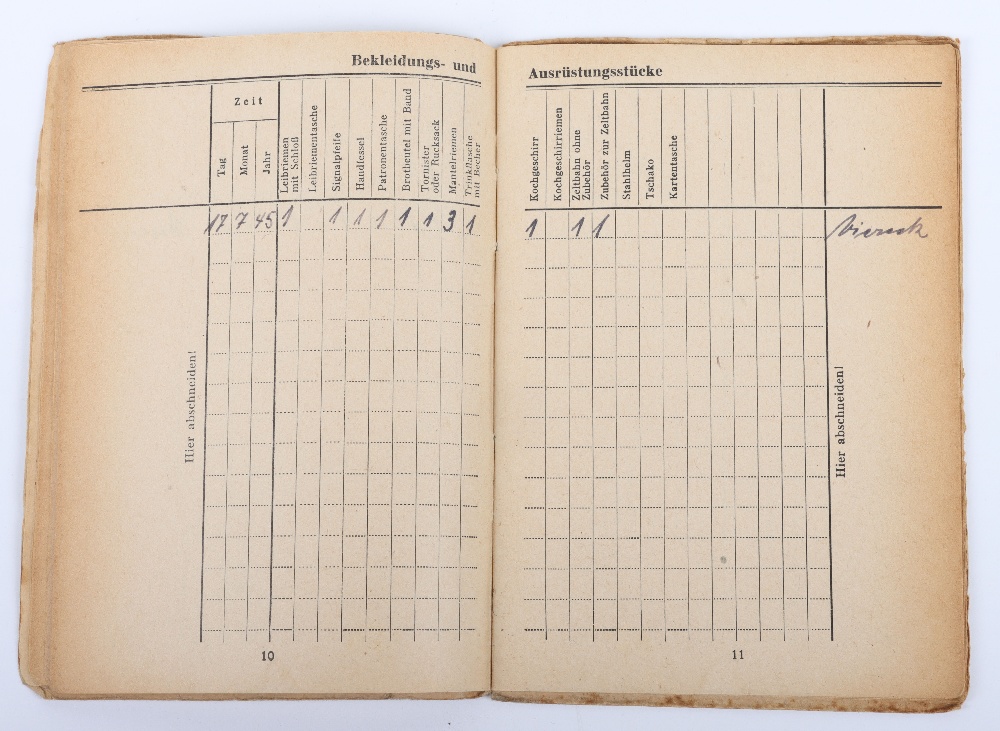 Bekleidungs- und
Zeit
Tag
Monat
Jahr
Leibriemen
mit Schloß
Leibriementasche
Signalpfeife
Handfessel
Patronentasche
Brotbeutel mit Band
Tornister
oder Rucksack
Mantelriemen
Trinkflasche
mit Becher
17 7 45 1 1 1 1 1 1 3 1
Hier abschneiden!
10
Ausrüstungsstücke
Kochgeschirr
Kochgeschirriemen
Zeltbahn ohne
Zubehör
Zubehör zur Zeltbahn
Stahlhelm
Tschako
Kartentasche
1 1 1
Hier abschneiden!
11